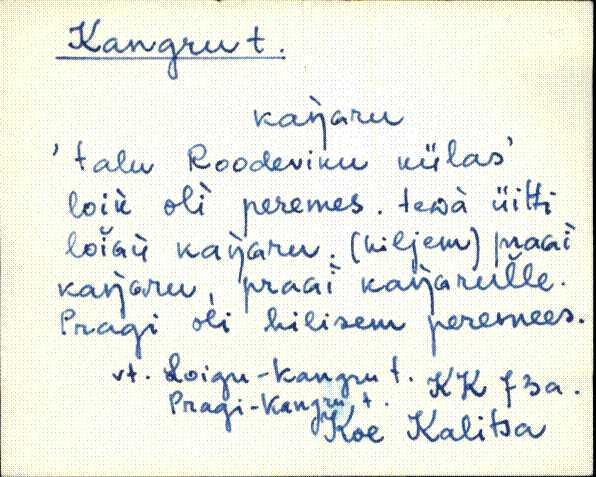 Kangru t.
kaŋ̀g̀aru
'talu Roodeviku külas'
loiɢ̀ olì peremes. tewà üitti
loiɢ̆ü kaŋ̀aru. (hiljem) praaì
kaŋ̀aru, praaì kaŋ̀arulle.
Pragi oli hilisem peremees.
vt. Loigu-Kangru t. KK 73a.
Pragi-Kangru t.
Koe Kalitsa